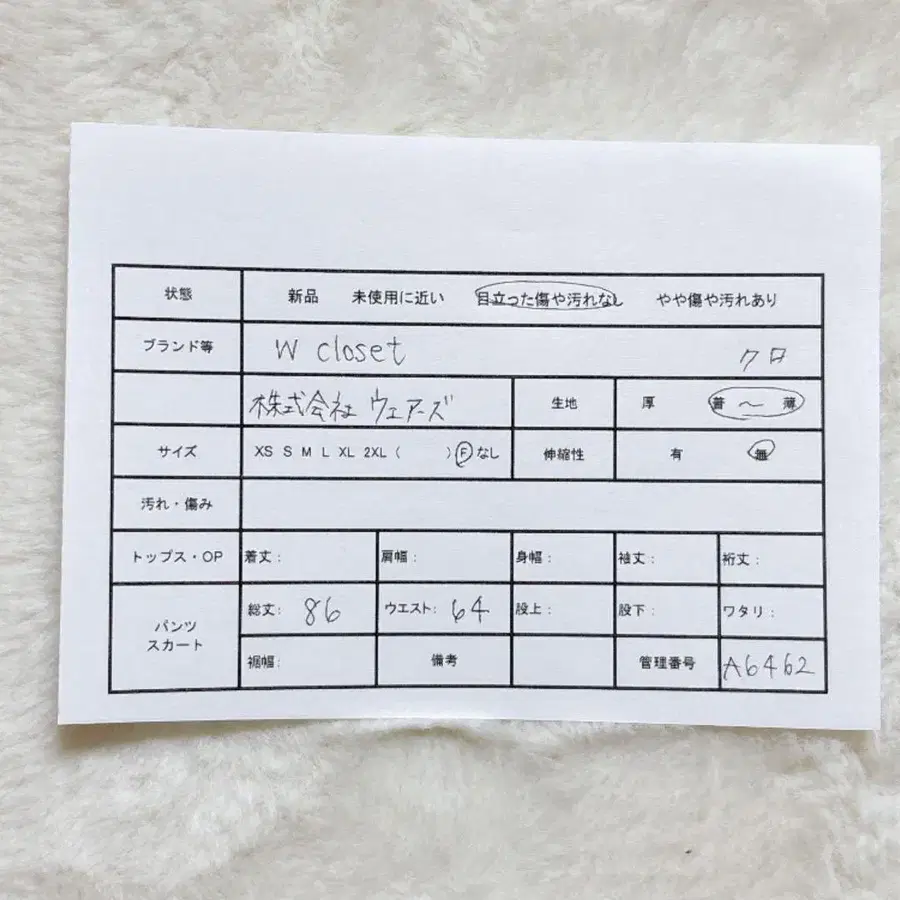 状態 新品 未使用に近い 目立った傷や汚れなし やや傷や汚れあり
ブランド等 W closet クロ
株式会社ウェアーズ 生地 厚 普 〜 薄
サイズ XS S M L XL 2XL ( ) F なし 伸縮性 有 無
汚れ・傷み
トップス・OP 着丈: 肩幅: 身幅: 袖丈: 裄丈:
パンツ スカート 総丈: 86 ウエスト: 64 股上: 股下: ワタリ:
裾幅: 備考 管理番号 A6462